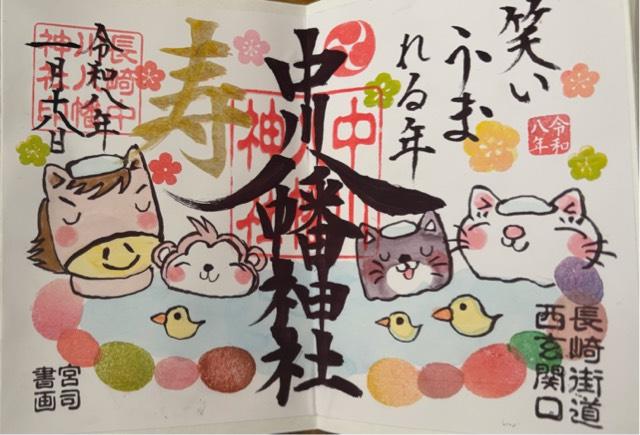 笑い
うま
れる年
令和
八年
長崎街道
西玄関口
中川八幡神社
寿
令和八年
一月十八日
長崎中
川八幡
神社印
宮司
書画